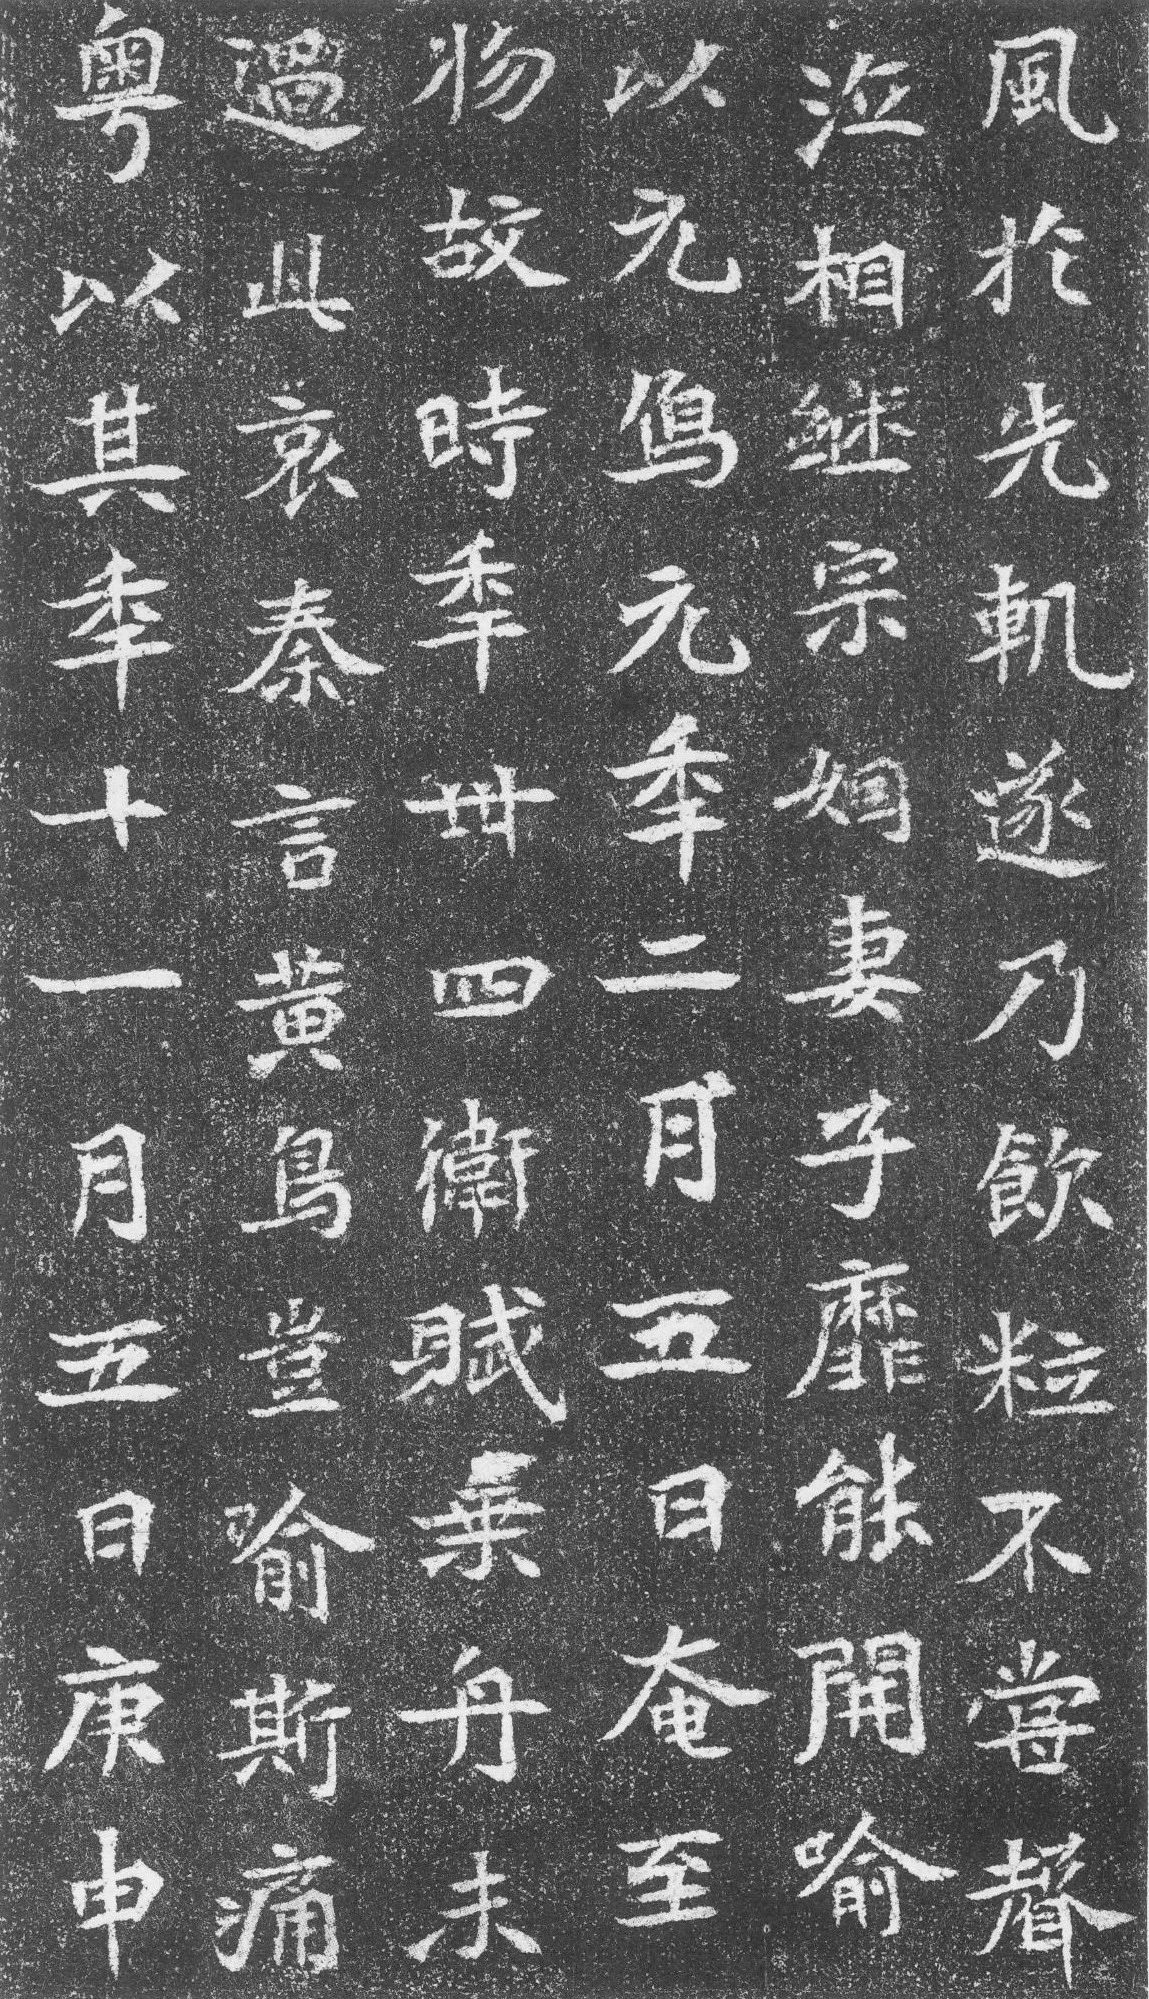 風於先軌遂乃飲粒不嘗聲
泣相繼宗姻妻子靡能開喻
以元象元秊二月五日奄至
物故時秊卅四衛賦乘舟未
過此哀秦言黃鳥豈喻斯痛
粤以其秊十一月五日庚申